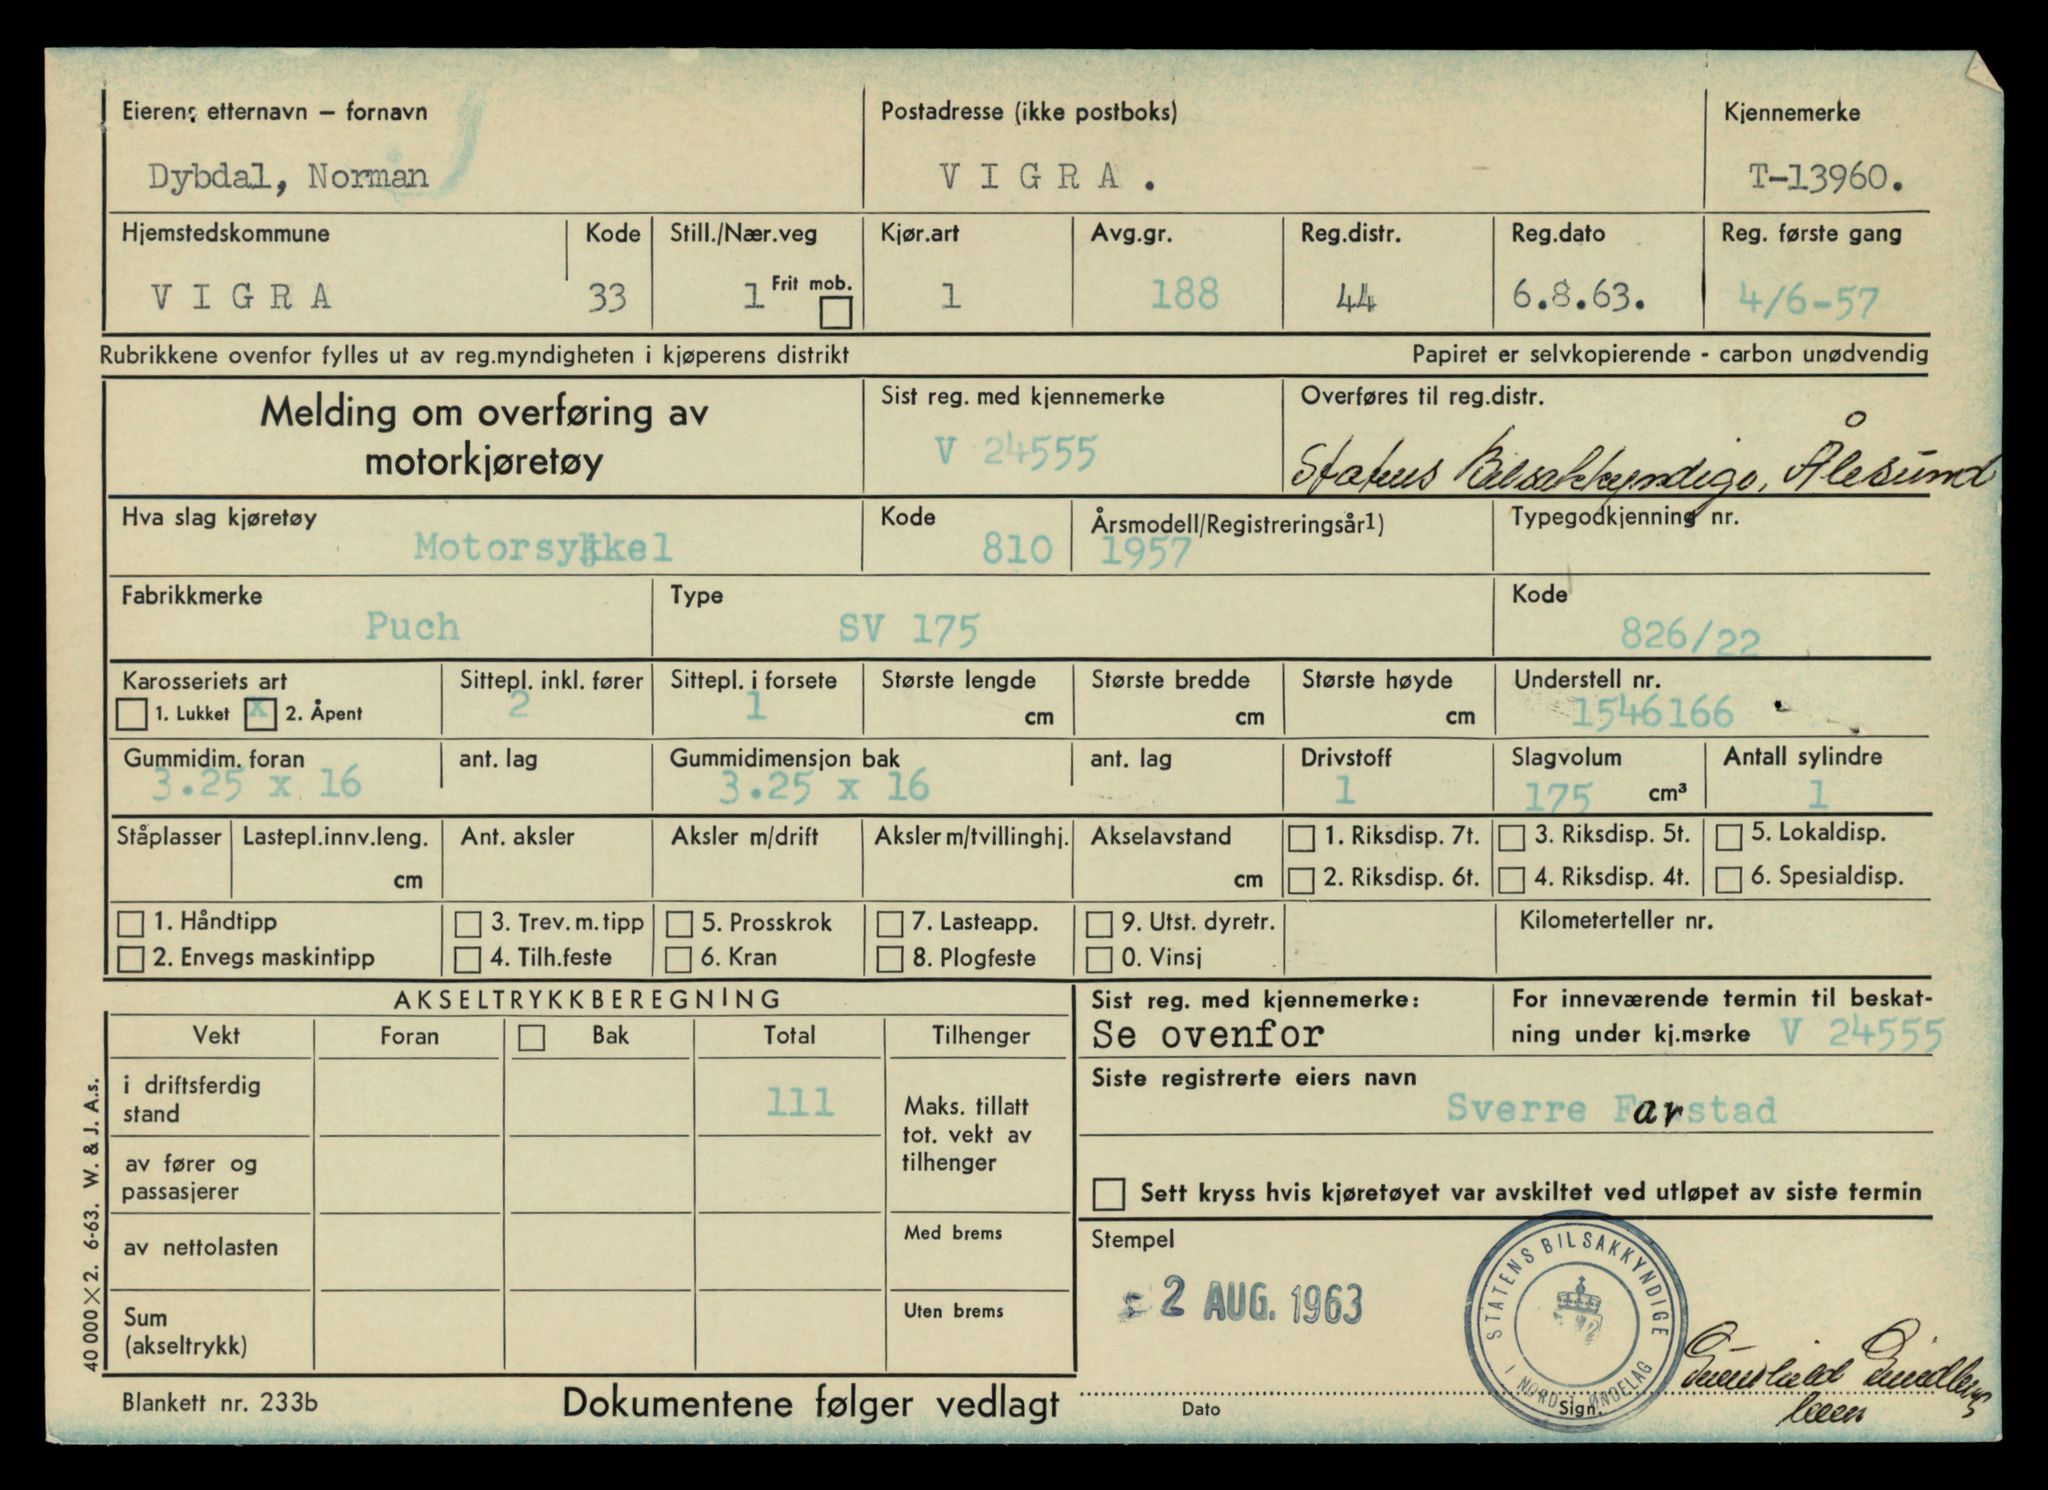 Eierens etternavn – fornavn Postadresse (ikke postboks) Kjennemerke
Dybdal, Norman V I G R A . T-13960.
Hjemstedskommune Kode Still./Nær.veg Kjør.art Avg.gr. Reg.distr. Reg.dato Reg. første gang
V I G R A 33 1 Frit mob. 1 188 44 6.8.63. 4/6-57
Rubrikkene ovenfor fylles ut av reg.myndigheten i kjøperens distrikt Papiret er selvkopierende - carbon unødvendig
Melding om overføring av
motorkjøretøy
Sist reg. med kjennemerke Overføres til reg.distr.
V 24555 Statens Bilsakkyndige, Ålesund
Hva slag kjøretøy Kode Årsmodell/Registreringsår1) Typegodkjenning nr.
Motorsykkel 810 1957
Fabrikkmerke Type Kode
Puch SV 175 826/22
Karosseriets art Sittepl. inkl. fører Sittepl. i forsete Største lengde Største bredde Største høyde Understell nr.
1. Lukket x 2. Åpent 2 1 cm cm cm 1546166
Gummidim. foran ant. lag Gummidimensjon bak ant. lag Drivstoff Slagvolum Antall sylindre
3.25 x 16 3.25 x 16 1 175 cm³ 1
Ståplasser Lastepl.innv.leng. Ant. aksler Aksler m/drift Aksler m/tvillinghj. Akselavstand 1. Riksdisp. 7t. 3. Riksdisp. 5t. 5. Lokaldisp.
cm cm 2. Riksdisp. 6t. 4. Riksdisp. 4t. 6. Spesialdisp.
1. Håndtipp 3. Trev. m. tipp 5. Prosskrok 7. Lasteapp. 9. Utst. dyretr. Kilometerteller nr.
2. Envegs maskintipp 4. Tilh.feste 6. Kran 8. Plogfeste 0. Vinsj
AKSELTRYKKBEREGNING
Vekt Foran Bak Total Tilhenger
i driftsferdig
stand 111
Maks. tillatt
tot. vekt av
tilhenger
av fører og
passasjerer
av nettolasten Med brems
Sum
(akseltrykk) Uten brems
Sist reg. med kjennemerke: For inneværende termin til beskat-
Se ovenfor ning under kj.merke V 24555
Siste registrerte eiers navn
Sverre Farstad
Sett kryss hvis kjøretøyet var avskiltet ved utløpet av siste termin
Stempel
2 AUG. 1963
STATENS BILSAKKYNDIGE
I NORD TRØNDELAG
Dato Sign.
Blankett nr. 233b Dokumentene følger vedlagt
40 000 × 2. 6-63. W. & J. A.s.